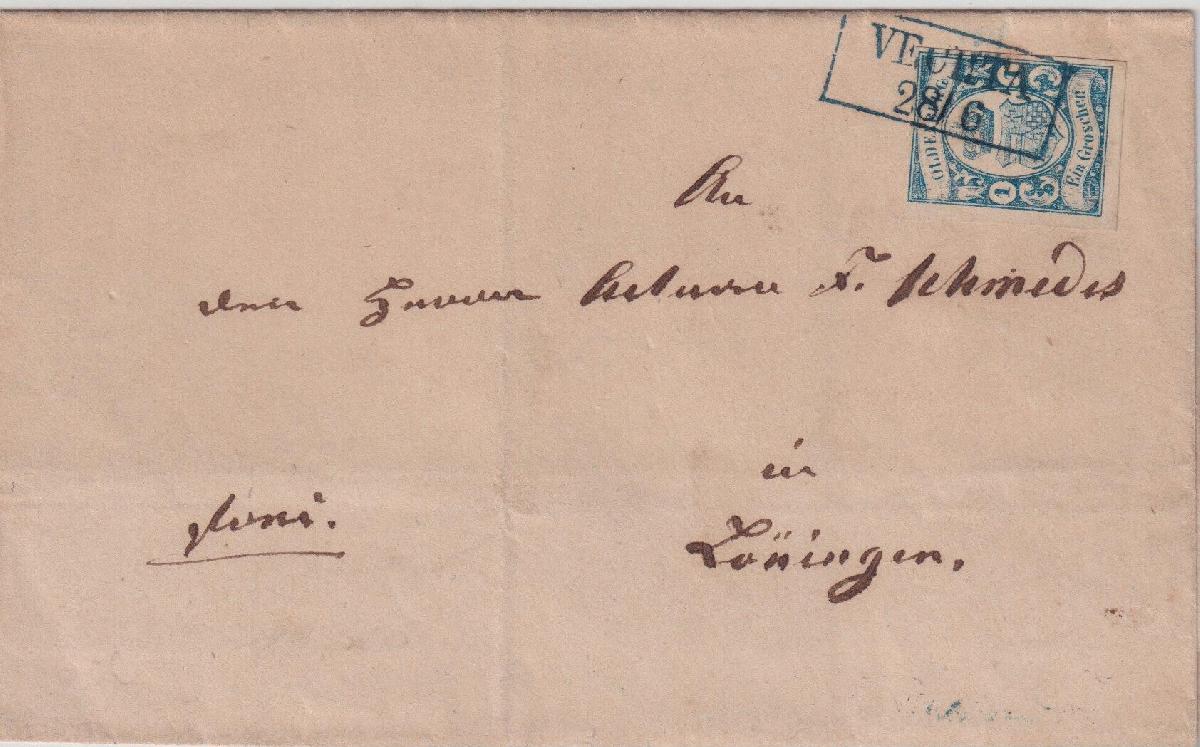 VECHTA
28/6
OLDENBURG.
Ein Groschen
1
An
den Herrn F. Schmedes
in
Löningen.